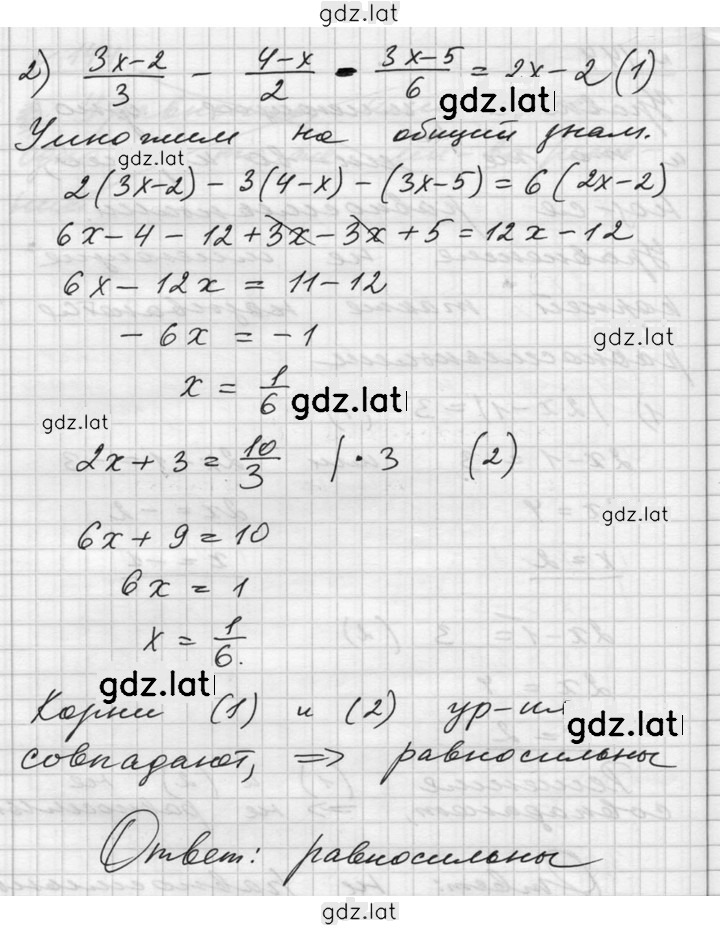 gdz.lat
2) (3x-2)/3 - (4-x)/2 - (3x-5)/6 = 2x-2 (1)
gdz.lat
Умножим на общий знам.
gdz.lat
2(3x-2) - 3(4-x) - (3x-5) = 6(2x-2)
6x-4-12+3x-3x+5=12x-12
6x-12x = 11-12
-6x = -1
gdz.lat
x = 1/6
gdz.lat
gdz.lat
2x+3=10/3 |·3 (2)
gdz.lat
6x+9=10
6x = 1
x = 1/6.
gdz.lat
Корни (1) и (2) ур-ия
gdz.lat
совпадают, => равносильны
Ответ: равносильны
gdz.lat